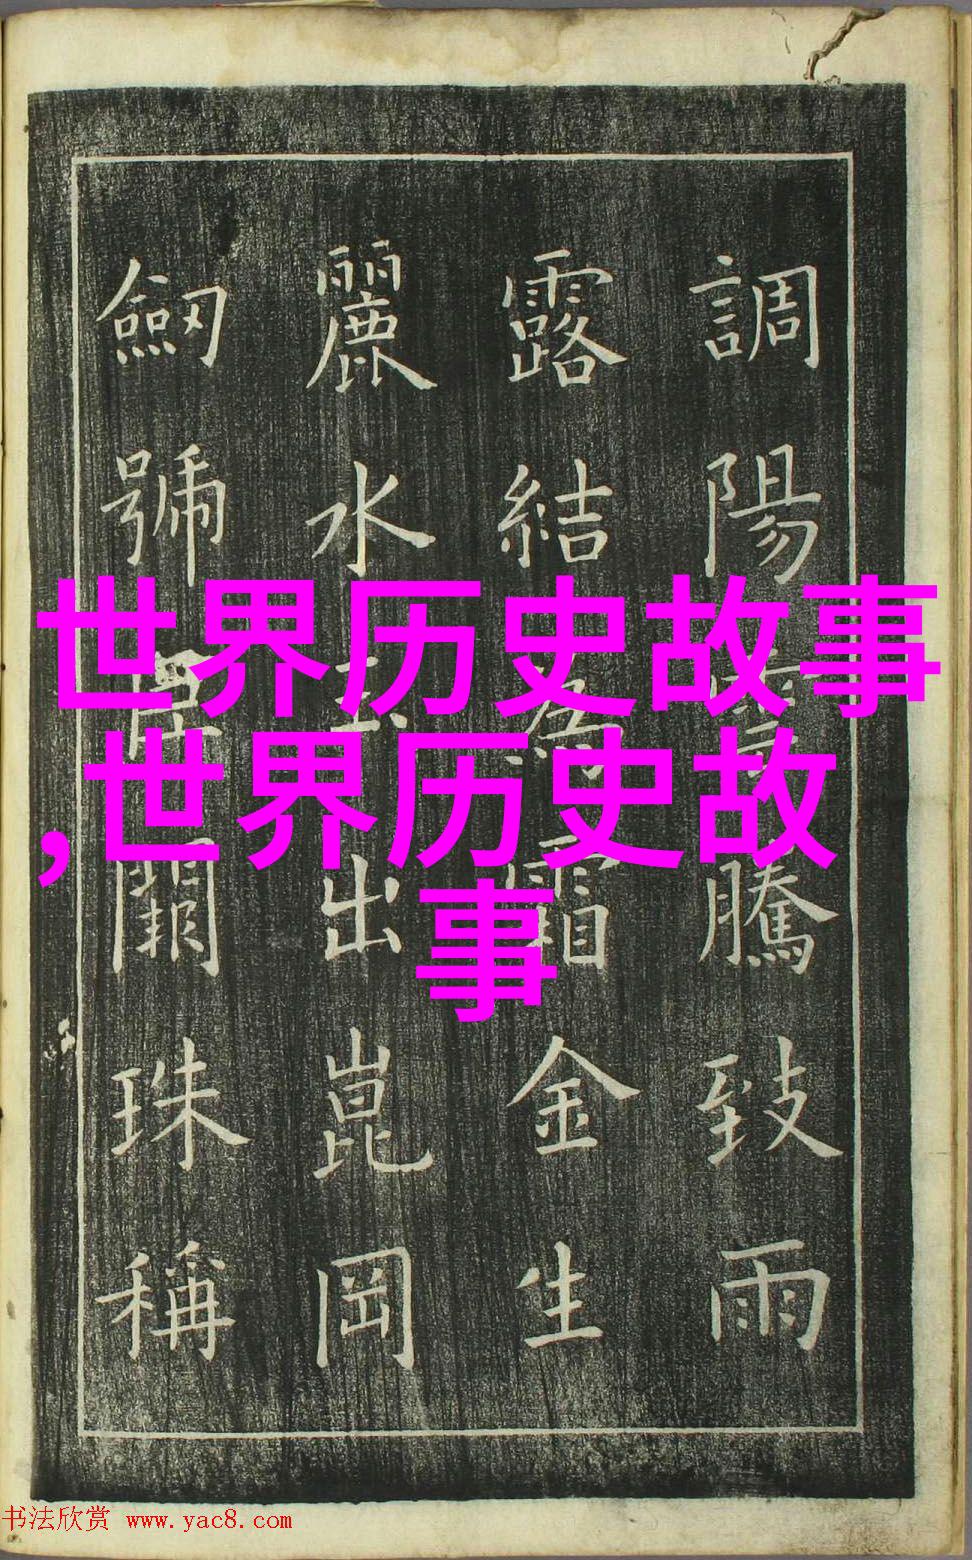 世界历史故事
,世界历史故
事
調陽雲騰致雨
露結為霜金生
麗水玉出崑岡
劒號巨闕珠稱
书法欣赏 www.yac8.com